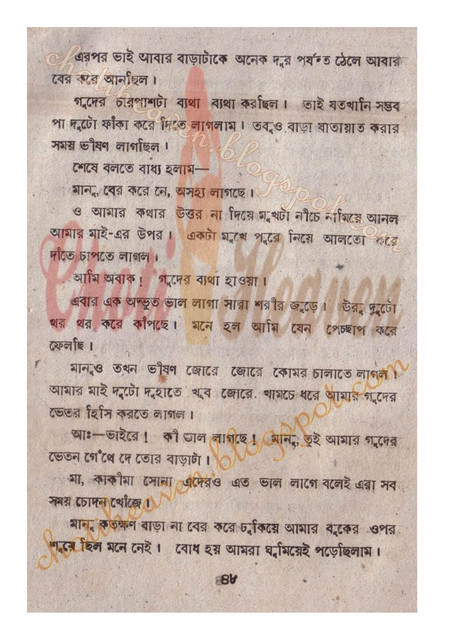 এরপর ভাই আবার বাড়াটাকে অনেক দূর পর্যন্ত ঠেলে আবার
বের করে আনছিল।
গুদের চারপাশটা ব্যথা ব্যথা করছিল। তাই যতখানি সম্ভব
পা দুটো ফাঁকা করে দিতে লাগলাম। তবুও বাড়া যাতায়াত করার
সময় ভীষণ লাগছিল।
শেষে বলতে বাধ্য হলাম—
মানু, বের করে নে, অসহ্য লাগছে।
ও আমার কথার উত্তর না দিয়ে মুখটা নীচে নামিয়ে আনল
আমার মাই-এর উপর। একটা মুখে পুরে নিয়ে আলতো করে
দাঁতে চাপতে লাগল।
আমি অবাক! গুদের ব্যথা হাওয়া।
এবার এক অদ্ভুত ভাল লাগা সারা শরীর জুড়ে। উরু দুটো
থর থর করে কাঁপছে। মনে হল আমি যেন পেচ্ছাপ করে
ফেলছি।
মানুও তখন ভীষণ জোরে জোরে কোমর চালাতে লাগল।
আমার মাই দুটো দুহাতে খুব জোরে খামচে ধরে আমার গুদের
ভেতর হিসি করতে লাগল।
আঃ—ভাইরে! কী ভাল লাগছে! মানু, তুই আমার গুদের
ভেতন গেঁথে দে তোর বাড়াটা।
মা, কাকীমা সোনা এদেরও এত ভাল লাগে বলেই এরা সব
সময় চোদন খোঁজে।
মানু কতক্ষণ বাড়া না বের করে ঢুকিয়ে আমার বুকের ওপর
শুয়ে ছিল মনে নেই। বোধ হয় আমরা ঘুমিয়েই পড়েছিলাম।
Choti Heaven
chotiheaven.blogspot.com
chotiheaven.blogspot.com